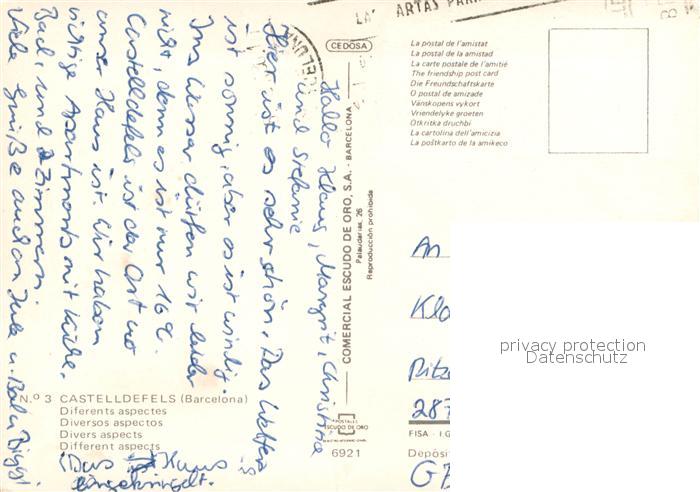 Hallo Klaus, Margrit, Christina
und Stefanie
Hier ist es sehr schön. Das Wetter
ist sonnig, aber es ist windig.
Ins Wasser dürfen wir leider
nicht, denn es ist nur 16°C.
Castelldefels ist der Ort wo
unser Haus ist. Wir haben
richtige Apartments mit Küche,
Bad, und 2 Zimmern.
Viele Grüße auch an Jule u. Baby
(Das Haus is
eingekringelt.
CEDOSA
COMERCIAL ESCUDO DE ORO, S.A. - BARCELONA
Palaudarias, 26
Reproducción prohibida
POSTALES
ESCUDO DE ORO
6921
N.º 3 CASTELLDEFELS (Barcelona)
Diferents aspectes
Diversos aspectos
Divers aspects
Different aspects
ARTAS
La postal de l'amistat
La postal de la amistad
La carte postale de l'amitié
The friendship post card
Die Freundschaftskarte
O postal de amizade
Vänskopens vykort
Vriendelyke groeten
Otkritka druchbi
La cartolina dell'amicizia
La poŝtkarto de la amikeco
An
Kla
Ritz
287
FISA - I.G
Depósi
privacy protection
Datenschutz